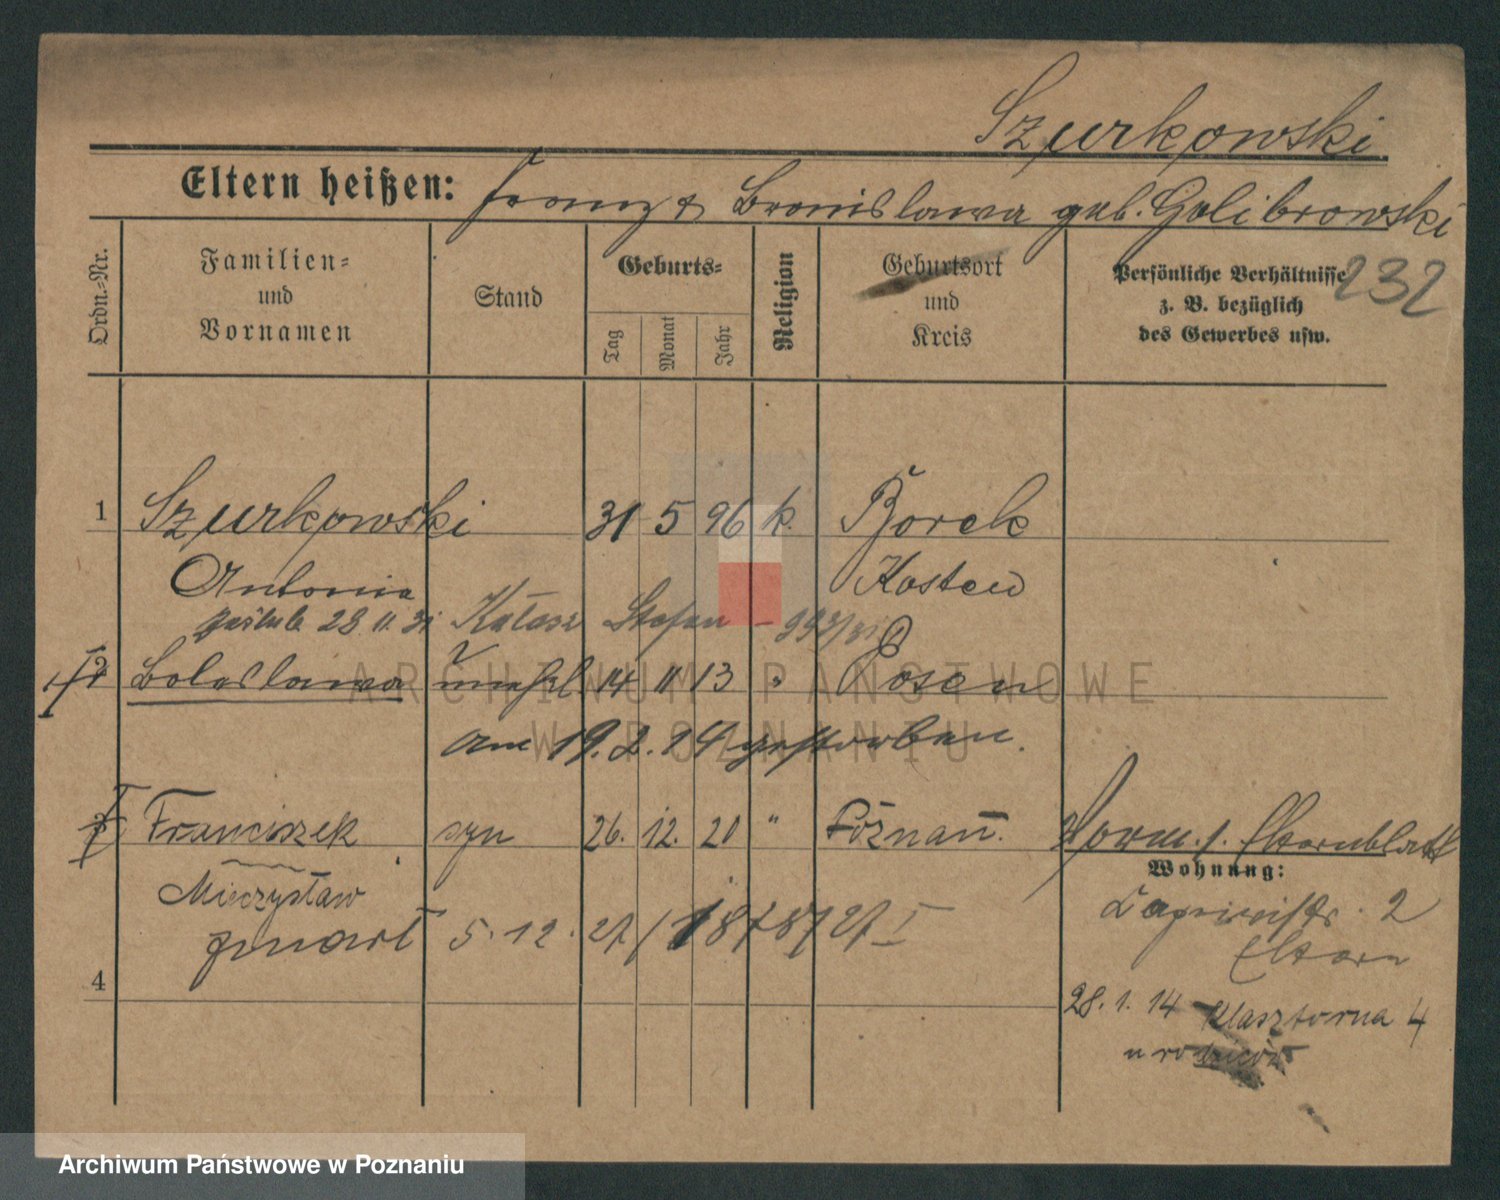 Szurkowski
Eltern heißen: Franz & Bronislawa geb. Golibrowski
Ordn.-Nr.
Familien-
und
Vornamen
Stand
Geburts-
Tag
Monat
Jahr
Religion
Geburtsort
und
Kreis
Persönliche Verhältnisse
z. B. bezüglich
des Gewerbes usw.
232
1 Szurkowski 31 5 96 k. Borek
Antonia Kosten
28 11 31 Kałasz Stefan
2 Boleslawa unehel 14 11 13 " Posen
am 19. 2. 14 gestorben.
3 Franciszek syn 26. 12. 20 " Poznań. Vorm. s. Elternblatt
Mieczysław
zmarł 5. 12. 27 / 1878/27 I
4
Wohnung:
2
Eltern
28. 1. 14 Klasztorna 4
u rodziców
ARCHIWUM PAŃSTWOWE
W POZNANIU
Archiwum Państwowe w Poznaniu